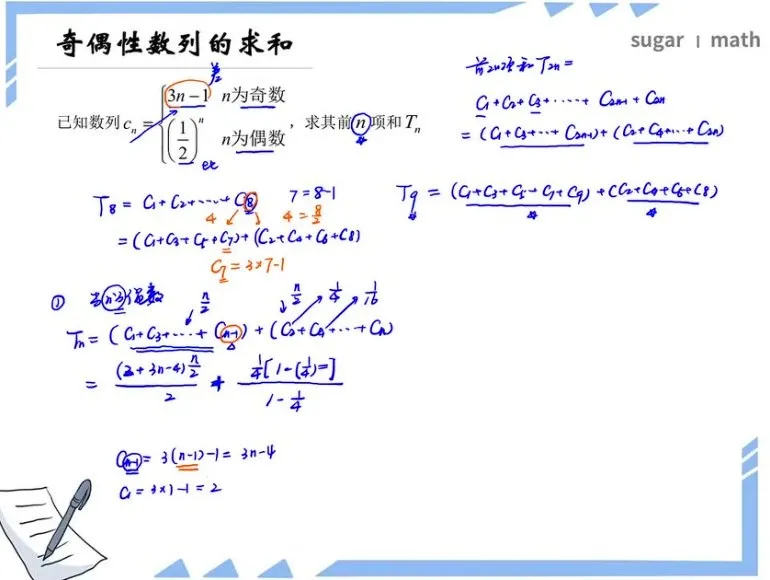 奇偶性数列的求和
sugar | math
差
已知数列 cₙ = { 3n−1 n为奇数
(1/2)ⁿ n为偶数 ，求其前 n 项和 Tₙ
前2n项和T₂ₙ=
C₁+C₂+C₃+·····+ C₂ₙ₋₁+C₂ₙ
= (C₁+C₃+···+C₂ₙ₋₁)+(C₂+C₄+···+C₂ₙ)
T₈ = C₁+C₂+·····+C₈ 7=8-1
4 4=8/2
= (C₁+C₃+C₅+C₇)+(C₂+C₄+C₆+C₈)
C₇=3×7-1
T₉ = (C₁+C₃+C₅+C₇+C₉)+(C₂+C₄+C₆+C₈)
① 当n为偶数 n/2 n/2 1/4 1/16
Tₙ= (C₁+C₃+····+Cₙ₋₁)+(C₂+C₄+···+Cₙ)
= (2+3n-4)n/2 / 2 + 1/4[1-(1/4) ] / 1-1/4
Cₙ₋₁= 3(n-1)-1= 3n-4
C₁=3×1-1=2